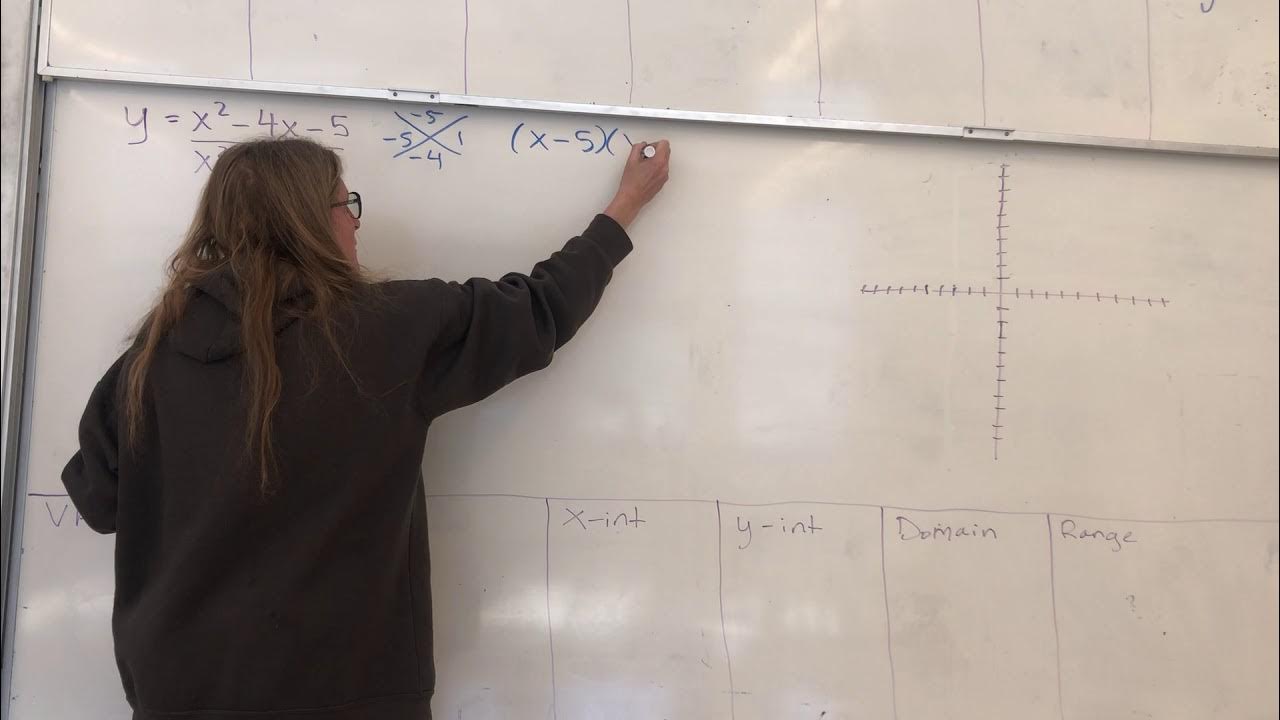 y = x² - 4x - 5
x
-5
-5 1
-4
(x-5)(x
V
X-int
y-int
Domain
Range
?